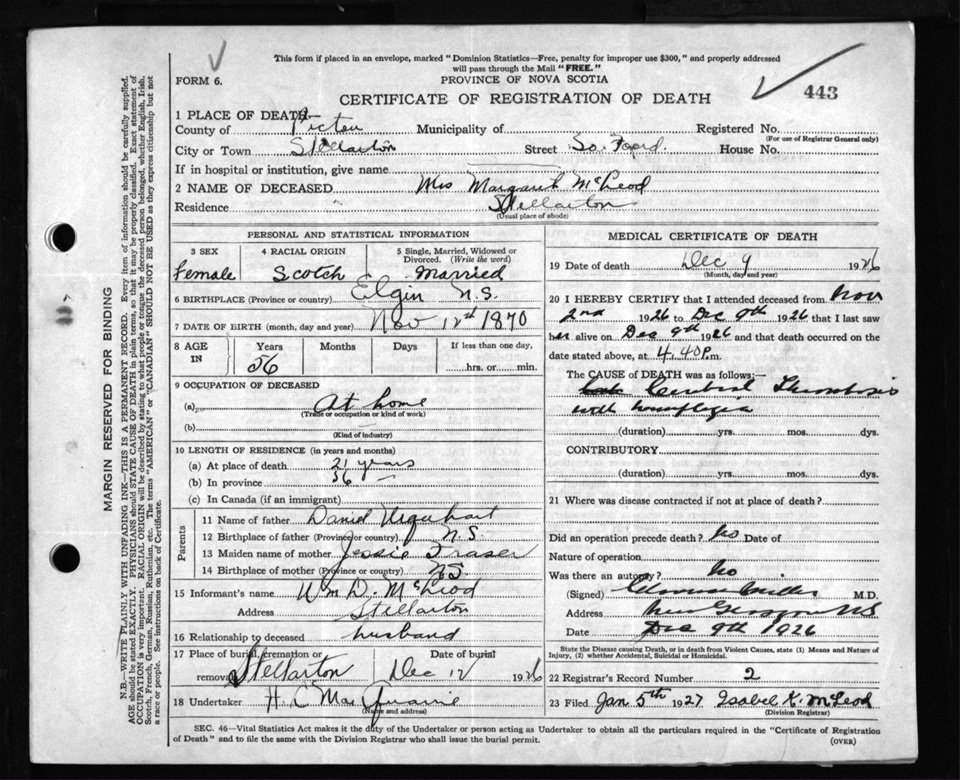 This form if placed in an envelope, marked "Dominion Statistics—Free, penalty for improper use $300," and properly addressed
will pass through the Mail "FREE."
FORM 6.
PROVINCE OF NOVA SCOTIA
CERTIFICATE OF REGISTRATION OF DEATH
443
1 PLACE OF DEATH
County of Pictou Municipality of Registered No.
(For use of Registrar General only)
City or Town Stellarton Street So. Foord. House No.
If in hospital or institution, give name
2 NAME OF DECEASED Mrs Margaret McLeod
Residence Stellarton
(Usual place of abode)
PERSONAL AND STATISTICAL INFORMATION
3 SEX 4 RACIAL ORIGIN 5 Single, Married, Widowed or
Divorced. (Write the word)
Female Scotch Married
6 BIRTHPLACE (Province or country) Elgin N.S.
7 DATE OF BIRTH (month, day and year) Nov 12th 1870
8 AGE IN Years Months Days If less than one day,
56 hrs. or min.
9 OCCUPATION OF DECEASED
(a) At home
(Trade or occupation or kind of work)
(b)
(Kind of industry)
10 LENGTH OF RESIDENCE (in years and months)
(a) At place of death 21 years
(b) In province 56
(c) In Canada (if an immigrant)
Parents
11 Name of father Daniel Urquhart
12 Birthplace of father (Province or country) N.S.
13 Maiden name of mother Jessie Fraser
14 Birthplace of mother (Province or country) NS
15 Informant's name Wm D. McLeod
Address Stellarton
16 Relationship to deceased husband
17 Place of burial, cremation or Date of burial
removal Stellarton Dec 12 1926
18 Undertaker H. C
(Name and address)
MEDICAL CERTIFICATE OF DEATH
19 Date of death Dec 9 1926
(Month, day and year)
20 I HEREBY CERTIFY that I attended deceased from Nov
2nd 1926 to Dec 9th 1926 that I last saw
her alive on Dec 9th 1926 and that death occurred on the
date stated above, at 4.40 P.m.
The CAUSE OF DEATH was as follows:—
Cerebral Thrombosis
with
(duration) yrs. mos. dys.
CONTRIBUTORY
(duration) yrs. mos. dys.
21 Where was disease contracted if not at place of death?
Did an operation precede death? No Date of
Nature of operation
Was there an autopsy? No
(Signed) M.D.
Address New Glasgow NS
Date Dec 9th 1926
State the Disease causing Death, or in death from Violent Causes, state (1) Means and Nature of
Injury, (2) whether Accidental, Suicidal or Homicidal.
22 Registrar's Record Number 2
23 Filed Jan 5th 1927 Isabel K. McLeod
(Division Registrar)
SEC. 46—Vital Statistics Act makes it the duty of the Undertaker or person acting as Undertaker to obtain all the particulars required in the "Certificate of Registration
of Death" and to file the same with the Division Registrar who shall issue the burial permit.
(OVER)
MARGIN RESERVED FOR BINDING
N.B.—WRITE PLAINLY WITH UNFADING INK—THIS IS A PERMANENT RECORD. Every item of information should be carefully supplied.
AGE should be stated EXACTLY. PHYSICIANS should STATE CAUSE OF DEATH in plain terms, so that it may be properly classified. Exact statement of
OCCUPATION is very important. RACIAL ORIGIN will be described by stating to what people or tongue the deceased person belonged, whether English, Irish,
Scotch, French, German, Russian, Ruthenian, etc. The terms "AMERICAN" or "CANADIAN" SHOULD NOT BE USED as they express citizenship but not
a race or people. See instructions on back of Certificate.